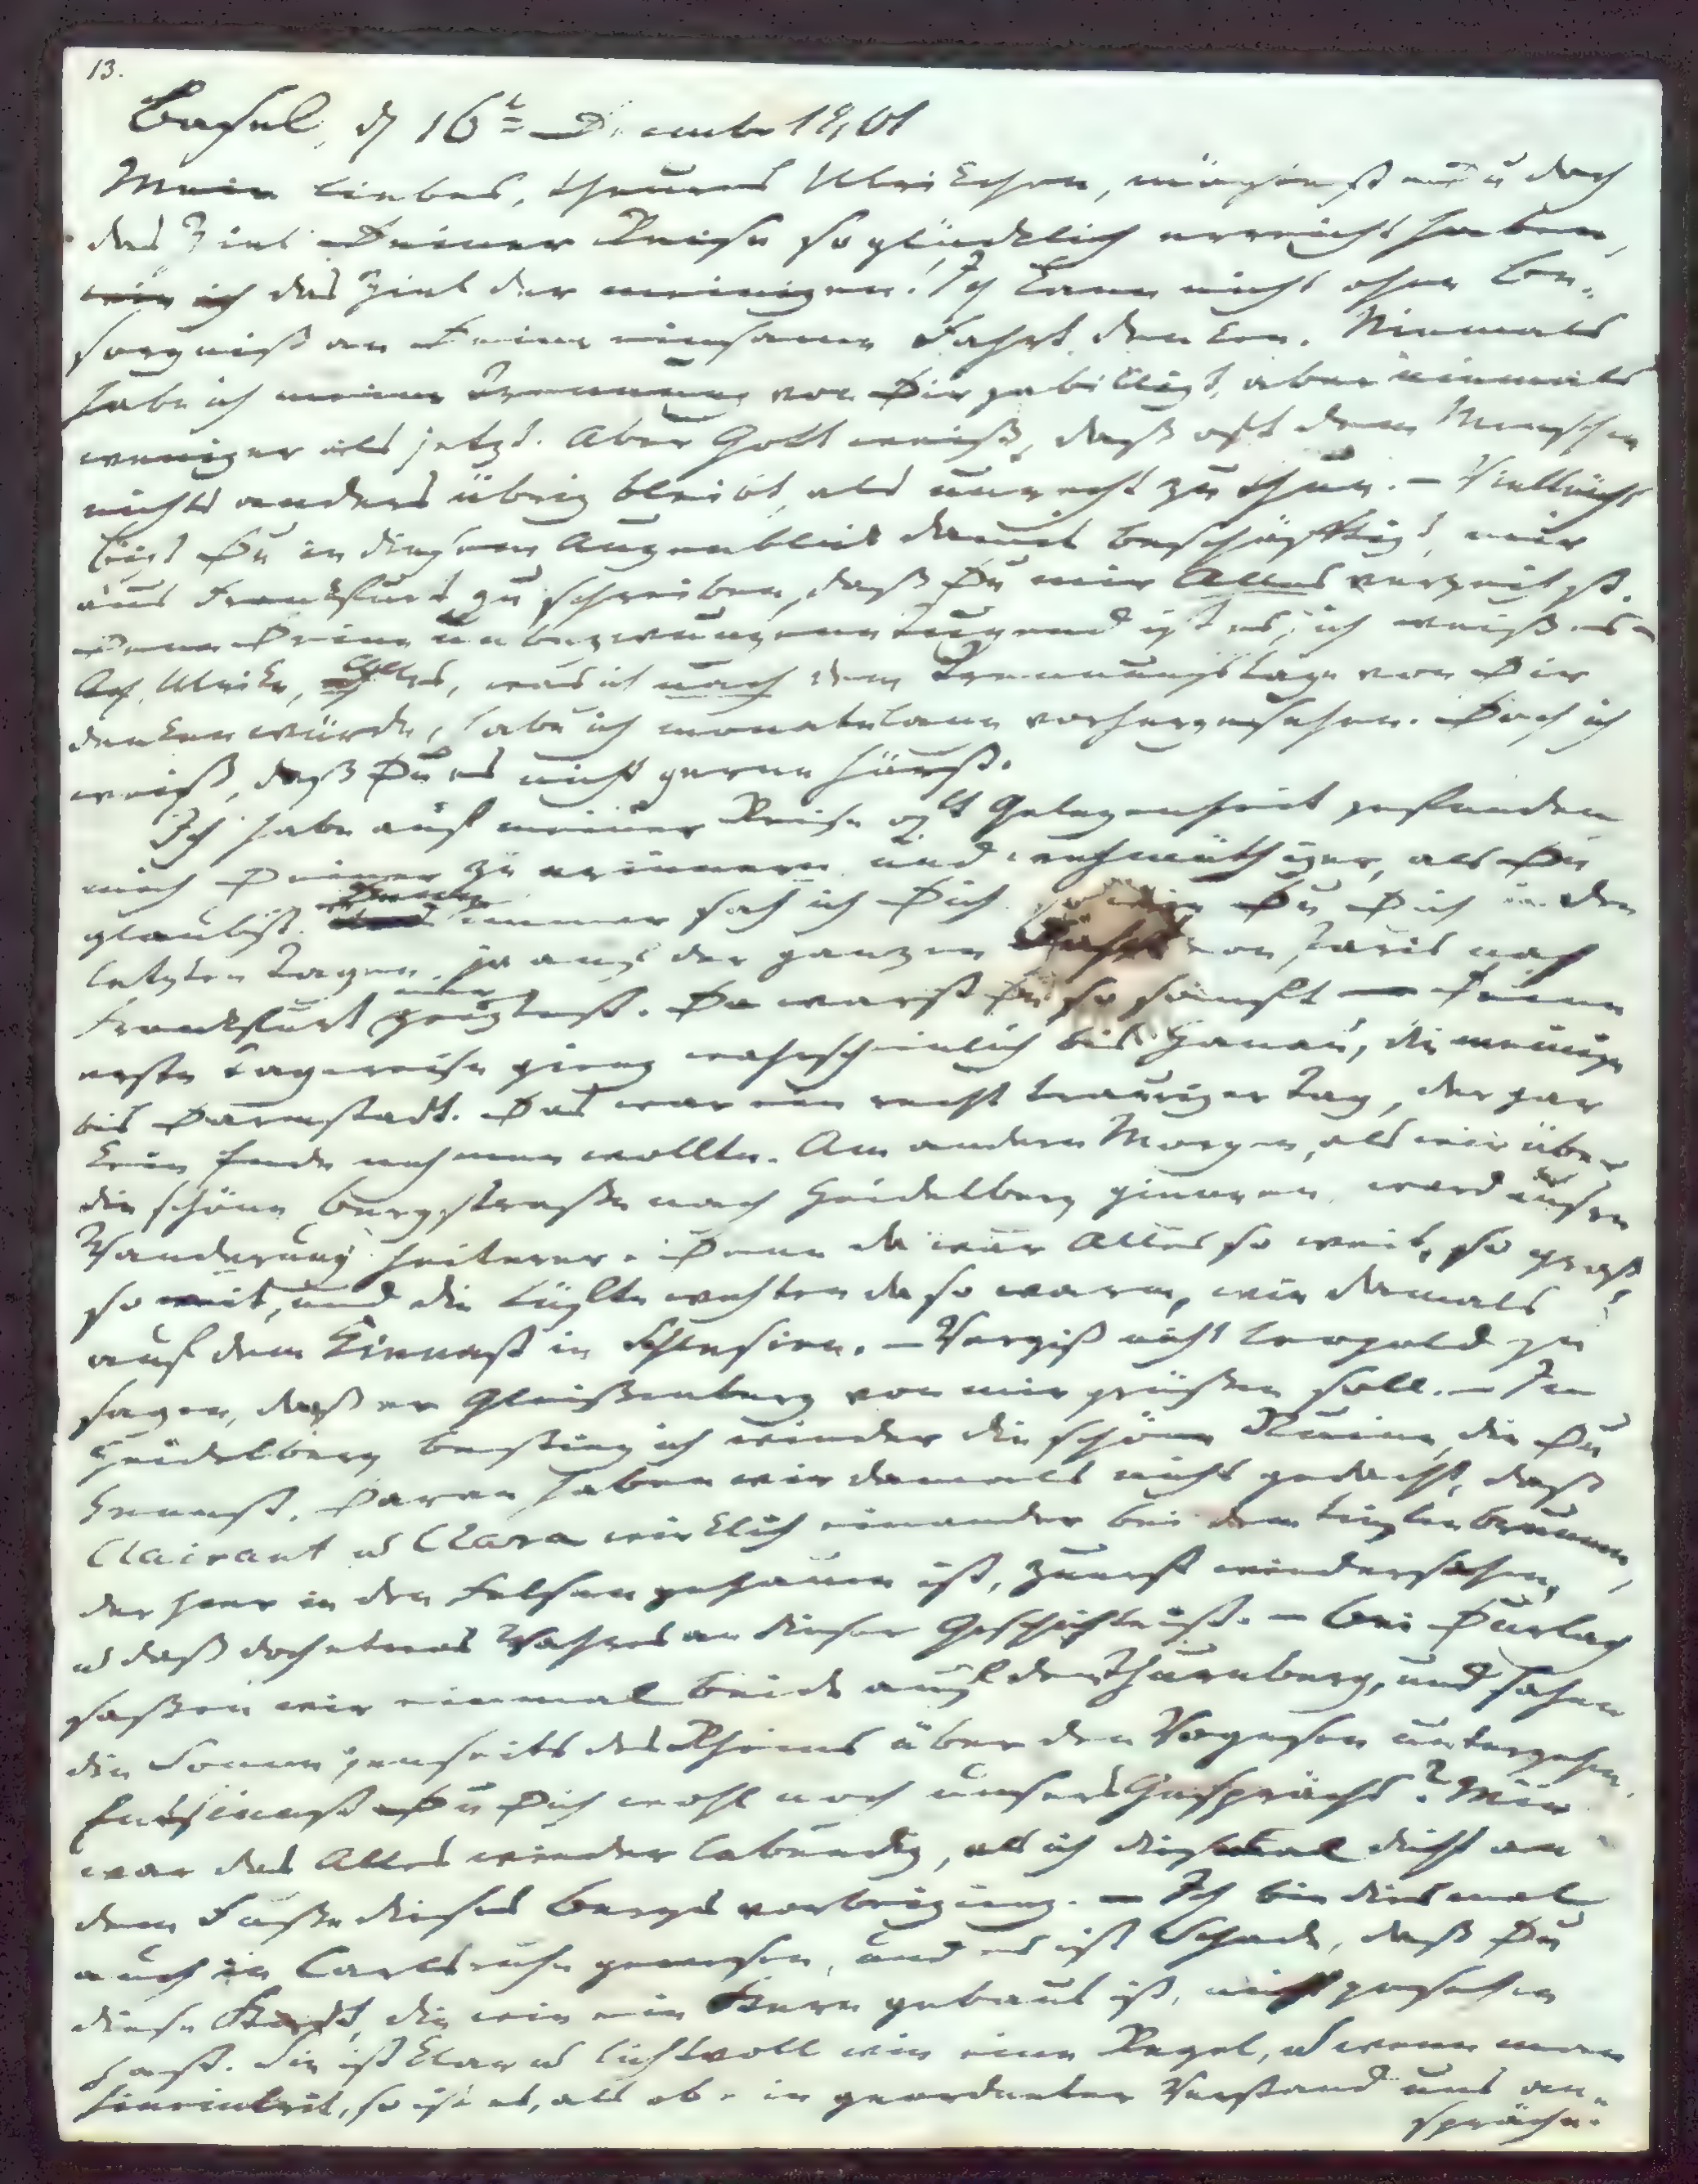 13.
Basel, d 16t December 1801
Mein liebes, theures Ulrikchen, mögtest du doch
das Ziel Deiner Reise so glücklich erreicht haben,
wie ich das Ziel der meinigen! Ich kann nicht ohne Be-
sorgniß an Deine einsame Fahrt denken. Niemals
habe ich meine Trennung von Dir gebilligt, aber niemals
weniger als jetzt. Aber Gott weiß, daß oft dem Menschen
nichts anders übrig bleibt, als unrecht zu thun. – Vielleicht
bist Du in diesem Augenblick damit beschäfftigt, mir
aus Frankfurt zu schreiben, daß Du mir Alles verzeihst.
Denn Deine unbezwungene Tugend ist es, ich weiß es –
Ach, Ulrike, Alles, was ich nach dem Trennungstage von Dir
denken würde, habe ich monatelang vorhergesehen. Doch ich
weiß, daß Du es nicht gerne hörst.
Ich habe auf meiner Reise oft Gelegenheit gefunden
mich Deiner zu erinnern und wehmüthiger, als Du
glaubst. Denn immer sah ich Dich so wie Du Dich in den
letzten Tagen, ja auf der ganzen Fahrt von Paris nach
Frankfurt mir zeigtest. Da warst Du so sanft — Deine
erste Tagereise gieng wahrscheinlich bis Hanau, die meinige
bis Darmstadt. Das war ein recht trauriger Tag, der gar
kein Ende nehmen wollte. Am andern Morgen, als wir über
die schöne Bergstraße nach Heidelberg giengen, ward unsre
Wanderung heiterer. Denn da war Alles so weit, so groß,
so weit, und die Lüfte wehten da so warm, wie damals
auf dem Kienast in Schlesien. – Vergiß nicht Leopold zu
sagen, daß er Gleißenberg von mir grüßen soll. – In
Heidelberg bestieg ich wieder die schöne Ruine, die Du
kennst. Daran haben wir damals nicht gedacht, daß
Clairant u Clara wirklich einander bei dem tiefen Brunnen,
der hier in den Felsen gehauen ist, zuerst wiedersahen,
u daß doch etwas Wahres an dieser Geschichte ist. – Bei Durlach
saßen wir einmal beide auf den Thurmberg, und sahen
die Sonne jenseits des Rheins über den Vogesen untergehen.
Entsinnst Du Dich wohl noch unsers Gesprächs? Mir
war das Alles wieder lebendig, als ich diesmal dicht an
dem Fuße dieses Berges vorbeigieng. — Ich bin diesmal
auch in Carlsruhe gewesen, und es ist Schade, daß Du
diese Stadt, die wie ein Stern gebaut ist, nicht gesehen
hast. Sie ist klar u lichtvoll wie eine Regel, u wenn man
hineintrit, so ist es, als ob ein geordneter Verstand uns an-
spräche.